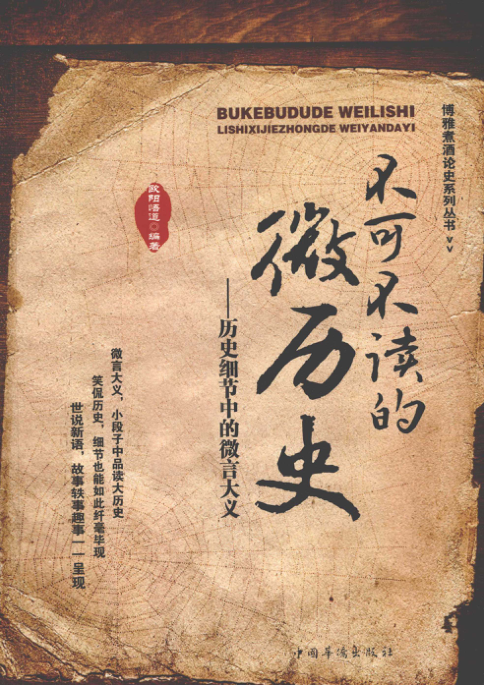 BUKEBUDUDE WEILISHI
LISHIXIJIEZHONGDE WEIYANDAYI
博雅煮酒论史系列丛书
不可不读的
微历史
——历史细节中的微言大义
欧阳悟道◎编著
微言大义，小段子中品读大历史
笑侃历史，细节也能如此纤毫毕现
世说新语，故事轶事趣事一一呈现
中国华侨出版社